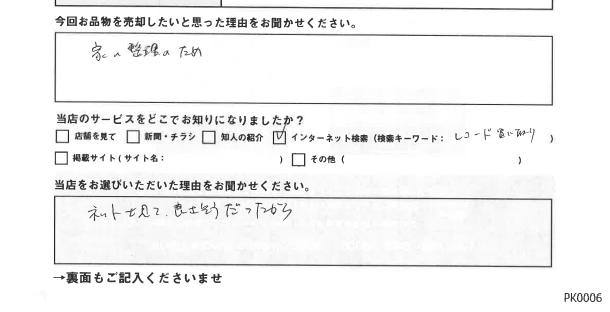 今回お品物を売却したいと思った理由をお聞かせください。
家の整理のため
当店のサービスをどこでお知りになりましたか？
□ 店舗を見て □ 新聞・チラシ □ 知人の紹介 ☑ インターネット検索（検索キーワード： レコード買い取り ）
□ 掲載サイト（サイト名： ） □ その他（ ）
当店をお選びいただいた理由をお聞かせください。
ネットを見て、良さそうだったから
→裏面もご記入くださいませ
PK0006